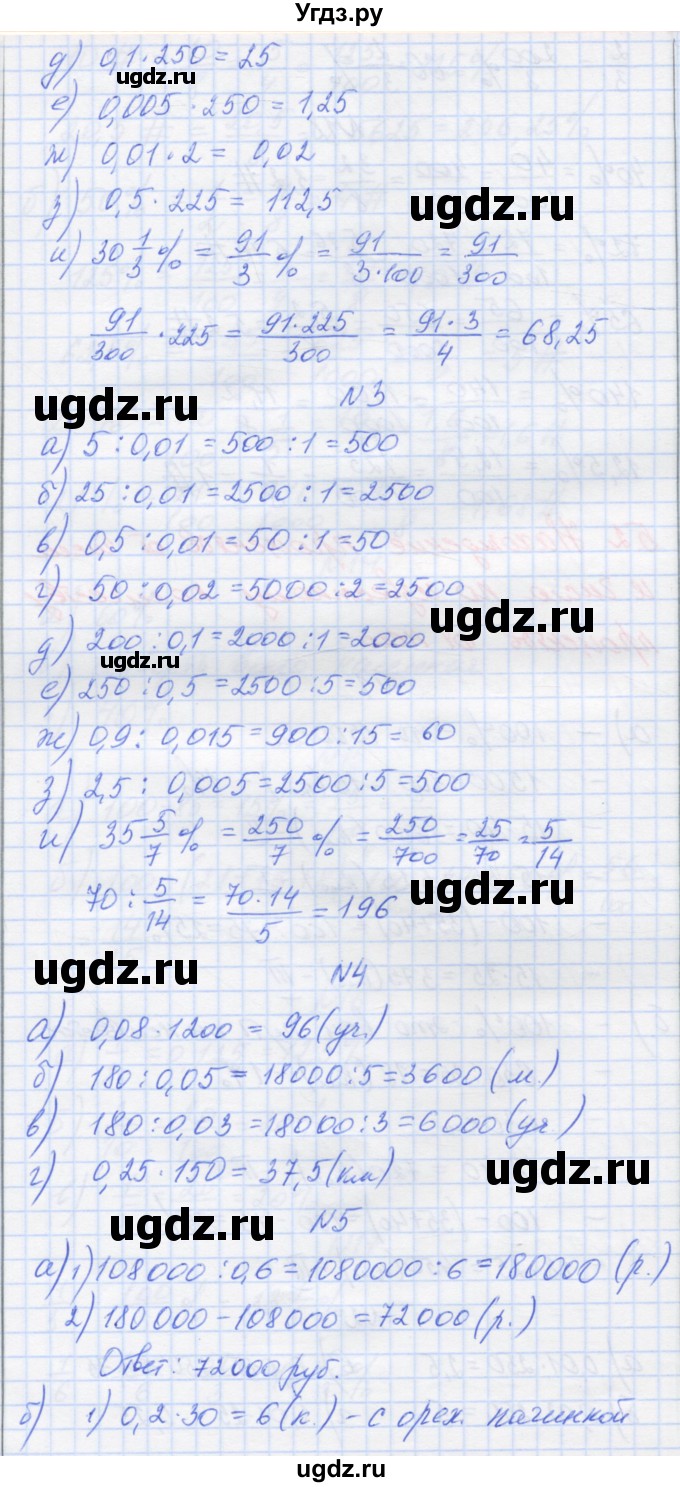 Угдз.ру
д) 0,1 · 250 = 25
ugdz.ru
е) 0,005 · 250 = 1,25
ж) 0,01 · 2 = 0,02
з) 0,5 · 225 = 112,5
ugdz.ru
и) 30 1/3 % = 91/3 % = 91/(3·100) = 91/300
91/300 · 225 = (91·225)/300 = (91·3)/4 = 68,25
ugdz.ru
N3
а) 5 : 0,01 = 500 : 1 = 500
б) 25 : 0,01 = 2500 : 1 = 2500
в) 0,5 : 0,01 = 50 : 1 = 50
г) 50 : 0,02 = 5000 : 2 = 2500
ugdz.ru
д) 200 : 0,1 = 2000 : 1 = 2000
ugdz.ru
е) 250 : 0,5 = 2500 : 5 = 500
ж) 0,9 : 0,015 = 900 : 15 = 60
з) 2,5 : 0,005 = 2500 : 5 = 500
и) 35 5/7 % = 250/7 % = 250/700 = 25/70 = 5/14
ugdz.ru
70 : 5/14 = (70·14)/5 = 196
ugdz.ru
N4
а) 0,08 · 1200 = 96 (уч.)
б) 180 : 0,05 = 18000 : 5 = 3600 (м.)
в) 180 : 0,03 = 18000 : 3 = 6000 (уч)
г) 0,25 · 150 = 37,5 (км)
ugdz.ru
ugdz.ru
N5
а) 1) 108000 : 0,6 = 1080000 : 6 = 180000 (р.)
2) 180000 - 108000 = 72000 (р.)
Ответ: 72000 руб.
б) 1) 0,2 · 30 = 6 (к.) - с орех. начинкой
ugdz.ru